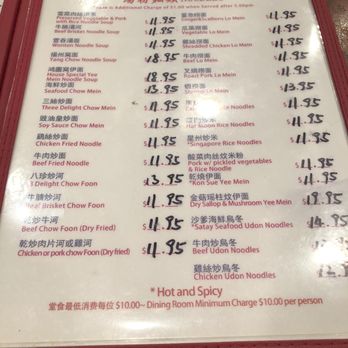 is Additional Charge of $1.00 when served after 5:00pm
雪菜肉絲伊麵
Preserved Vegetable & Pork
with Rice Noodle Soup
11.95
牛腩湯河
Beef Brisket Noodle Soup
11.95
雲吞湯麵
Wonton Noodle Soup
11.95
揚州窩麵
Yang Chow Noodle Soup
鴻圖窩伊麵
House Special Yee
Mein Noodle Soup
海鮮炒麵
Seafood Chow Mein
13.95
三絲炒麵
Three Delight Chow Mein
豉油皇炒麵
Soy Sauce Chow Mein
11.95
鷄絲炒麵
Chicken Fried Noodle
$11.95
牛肉炒麵
Beef Fried Noodle
$11.95
八珍炒河
Delight Chow Foon
$13.95
牛腩炒河
Beef Brisket Chow Foon
$11.95
乾炒牛河
Beef Chow Foon (Dry Fried)
$11.95
乾炒肉片河或雞河
Chicken or pork chow Foon (Dry fried)
$11.95
薑葱撈麵
Ginger&Scallions Lo Mein
11.95
瓜菜撈麵
Vegetable Lo Mein
11.95
雞絲撈麵
Shredded Chicken Lo Mein
11.95
牛肉撈麵
Beef Lo Mein
11.95
叉燒撈麵
Roast Pork Lo Mein
蝦撈麵
Shrimp Lo Mein
星州炒米
*Singapore Rice Noodle
11.95
酸菜肉絲炆米粉
Pork w/ pickled vegetables
& Rice Noodle
$11.95
乾燒伊麵
*Kon Sue Yee Mein
金菇瑤柱炆伊麵
Dry Sallop & Mushroom Yee Mein
沙爹海鮮烏冬
*Satay Seafood Udon Noodles
牛肉炒烏冬
Beef Udon Noodles
雞絲炒烏冬
Chicken Udon Noodles
* Hot and Spicy
堂食最低消费每位 $10.00~ Dining Room Minimum Charge $10.00 per person